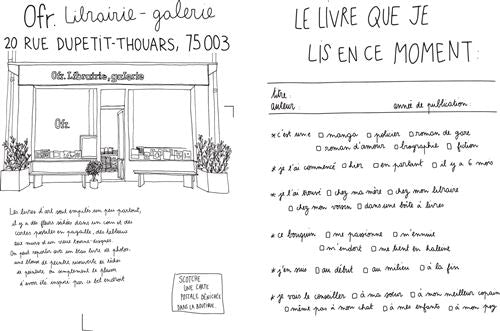 Ofr. Librairie-galerie
20 RUE DUPETIT-THOUARS, 75003
Ofr. Librairie, galerie
Ofr.
Les livres d'art sont empilés un peu partout,
il y a des fleurs séchées dans un coin et des
cartes postales en pagaille, des tableaux
aux murs et un vieux tourne-disques.
On peut repartir avec un beau livre de photos,
une blouse de peintre recouverte de taches
de peinture ou simplement le plaisir
d'avoir été inspiré par ce bel endroit
SCOTCHE
UNE CARTE
POSTALE DÉNICHÉE
DANS LA BOUTIQUE
LE LIVRE QUE JE
LIS EN CE MOMENT:
titre:
auteur: année de publication:
*c'est un·e □ manga □ policier □ roman de gare
□ roman d'amour □ biographie □ fiction
*je l'ai commencé □ hier □ en partant □ il y a 6 mois
*je l'ai trouvé □ chez ma mère □ chez mon libraire
□ chez mon voisin □ dans une boîte à livres
*ce bouquin □ me passionne □ m'ennuie
□ m'endort □ me tient en haleine
*j'en suis □ au début □ au milieu □ à la fin
*je vais le conseiller □ à ma sœur □ à mon meilleur copain
□ même pas à mon chat □ à mes enfants □ à mon psy